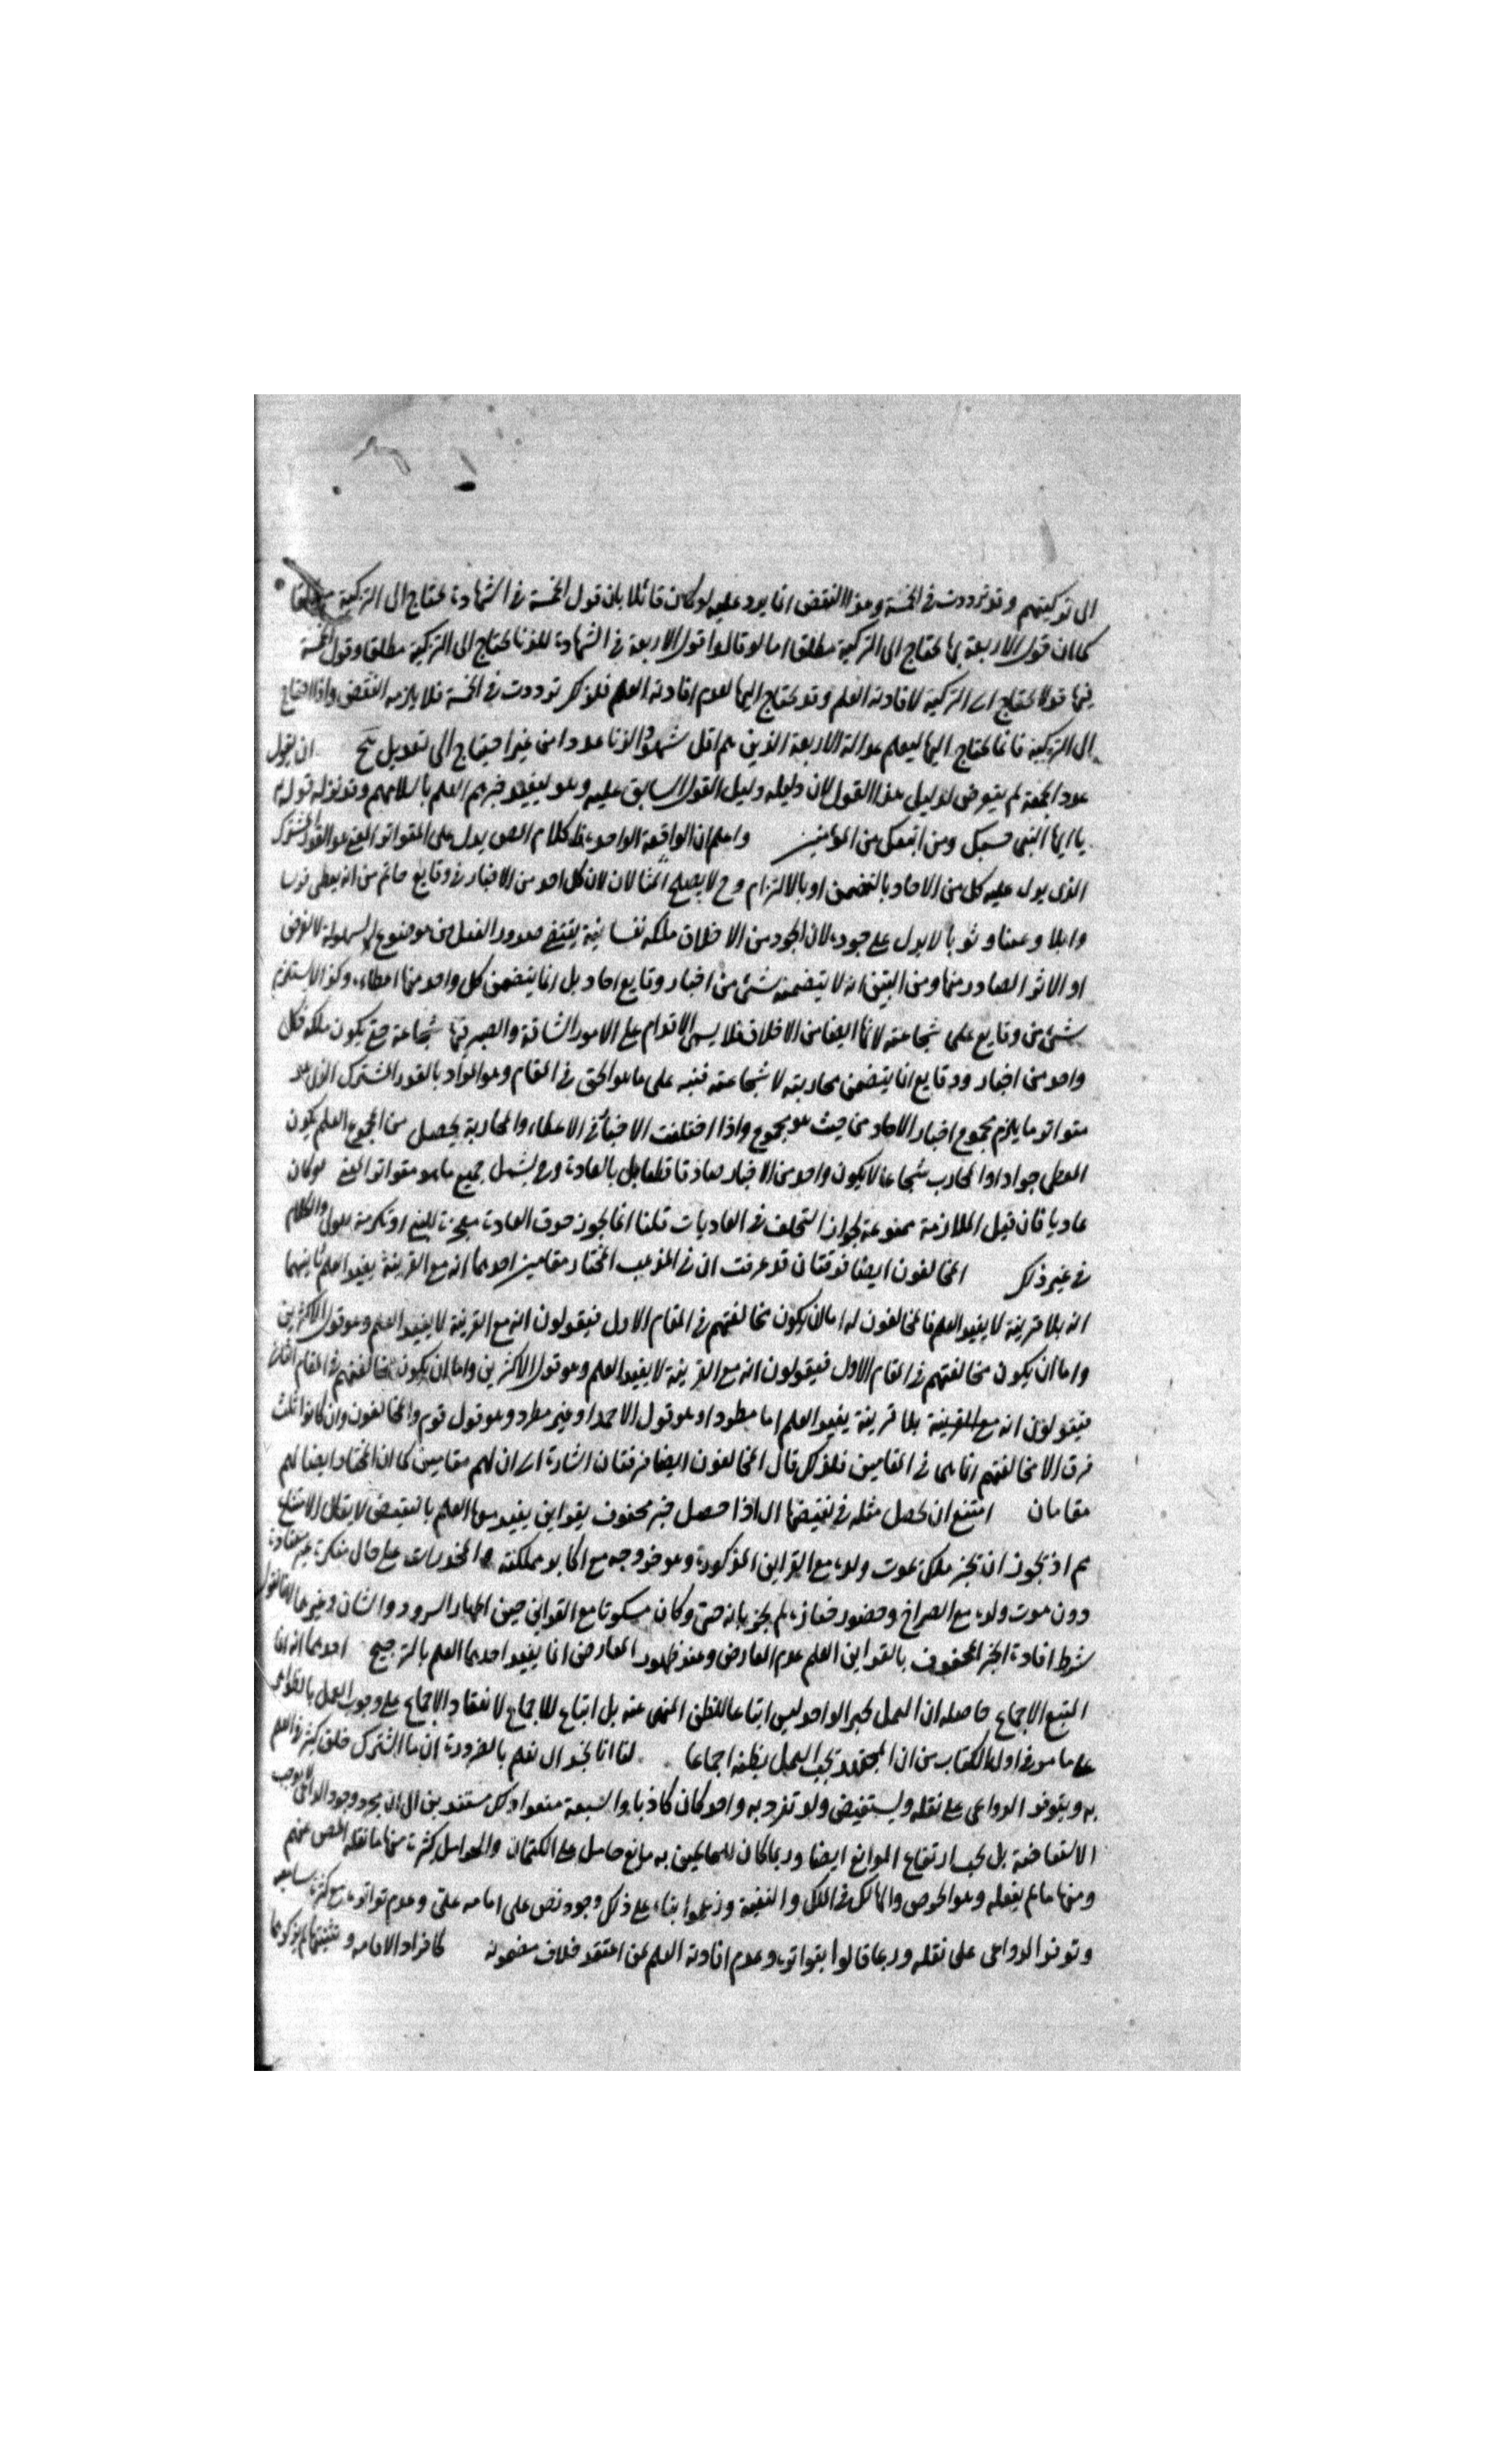 الى تزكيتهم وقد ترددت في الخمسة وهذا النقض انما يرد عليه لو كان قائلا بان قول الخمسة في الشهادة يحتاج الى التزكية مطلقا
كما ان قول الاربعة بها يحتاج الى التزكية مطلقا اما لو قالوا قول الاربعة في الشهادة للزنا يحتاج الى التزكية مطلقا وقول الخمسة
فيها قد لا يحتاج الى التزكية لافادته العلم وقد يحتاج اليها لعدم افادته العلم فلذلك ترددت في الخمسة فلا يلزمه النقض واذا احتاج
الى التزكية فانما يحتاج اليها ليعلم عدالة الاربعة الذين هم اقل شهود الزنا عددا من غير احتياج الى تعديل ان يقول
عدد الجمعة لم يتعرض لدليل هذا القول لان دليله دليل القول السابق عليه وهو ليفيد خبرهم العلم باسلامهم وقد نزله قوله
يا ايها النبي حسبك ومن اتبعك من المؤمنين واعلم ان الواقعة الواحدة كلام المص يدل على المتواتر المعنى هو القدر المشترك
الذي يدل عليه كل من الاحاد بالتضمن او بالالتزام وح لا يصلح المثالان لان كل احد من الاخبار في وقايع حاتم من انه يعطي فرسا
وابلا وعينا وثوبا لا يدل على جوده لان الجود من الاخلاق ملكة نفسانية يقتضي صدور الفعل من موضوع لها لسهولة لا لغرض
او الاثر الصادر منها ومن البين انه لا يتضمنه شئ من اخبار وقايع احاد بل انما يتضمن كل واحد منها اعطاء وكذا لا يستلزم
شئ من وقايع علي شجاعته لانها ايضا من الاخلاق فلا يسمى الاقدام على الامور الشاقة والصبر فيها شجاعة حتى يكون ملكة فكل
واحد من اخبار وقايع انما يتضمن محاربته لا شجاعته فنبه على ما هو الحق في المقام وهو المراد بالقدر المشترك الذي هو
متواتر ما يلزم مجموع اخبار الاحاد من حيث هو مجموع واذا اختلفت الاخبار في الاعطاء والمحاربة يحصل من المجموع العلم بكون
المعطي جوادا والمحارب شجاعا لا يكون واحد من الاخبار صادقا قطعا بل بالعادة وح يشمل جميع ما هو متواتر المعنى لو كان
عاديا فان قيل الملازمة ممنوعة لجواز التخلف في العاديات قلنا انما يجوز خرق العادة معجزة للنبي او تكرمة للولي والكلام
في غير ذلك المخالفون ايضا فرقتان قد عرفت ان في المذهب المختار مقامين احدهما انه مع القرينة يفيد العلم ثانيهما
انه بلا قرينة لا يفيد العلم فالمخالفون له اما ان يكون مخالفتهم في المقام الاول فيقولون انه مع القرينة لا يفيد العلم وهو قول الاكثرين
واما ان يكون مخالفتهم في المقام الاول فيقولون انه مع القرينة لا يفيد العلم وهو قول الاكثرين واما ان يكون مخالفتهم في المقام الثاني
فيقولون انه مع القرينة بلا قرينة يفيد العلم اما مطردا وهو قول الاحمد او غير مطرد وهو قول قوم والمخالفون وان كانوا ثلث
فرق الا مخالفتهم انما هي في المقامين فلذلك قال المخالفون ايضا فرقتان اشارة الى ان لهم مقامين كما ان المختار ايضا لهم
مقامان امتنع ان يحصل مثله في نقيضها اي اذا حصل خبر محفوف بقراين يفيد معها العلم بالنقيض لا يقال الامتناع
مم اذ يجوز انه يخبر ملك بموت ولده مع القراين المذكورة وهو خروجه مع اكابر مملكته والمخدرات على حال منكرة غير معتادة
دون موت ولده مع الصراخ وحضور جنازة ثم يخبر بانه حتى وكان مسكوتا مع القراين حين اظهار السرور والشان وغيرهما لانا نقول
شرط افادة الخبر المحفوف بالقراين العلم عدم العارض وعند ظهور العارض انما يفيد احدهما العلم بالترجيح احدهما انه انما
المتبع الاجماع حاصله ان العمل بخبر الواحد ليس اتباعا للظن المنهي عنه بل اتباع للاجماع لانعقاد الاجماع على وجوب العمل بالظواهر
على ما مر في اول الكتاب من ان المجتهد يجب العمل بظنه اجماعا لنا انا نجد اي نعلم بالضرورة ان ما اشترك خلق كثير في العلم
به ويتوفر الدواعي على نقله ويستفيض ولو تفرد به واحد كان كاذبا والشيعة منعوا ذلك مستندين الى ان مجرد وجود الداعي لا يوجب
الاستفاضة بل يجب ارتفاع الموانع ايضا وربما كان للعالمين به مانع حاصل على الكتمان والحوامل كثيرة منها ما نقله المص عنهم
ومنها ما لم ينقله وهو الحرص والمالك في الملك والنفيعة وزعموا بناء على ذلك وجود نص على امامه علي وعدم تواتره مع كثرة سامعه
وتوفر الدواعي على نقله وربما قالوا بتواتره وعدم افادته العلم لمن اعتقد خلاف مضمونه كافراد الاقامه وتثنيتها